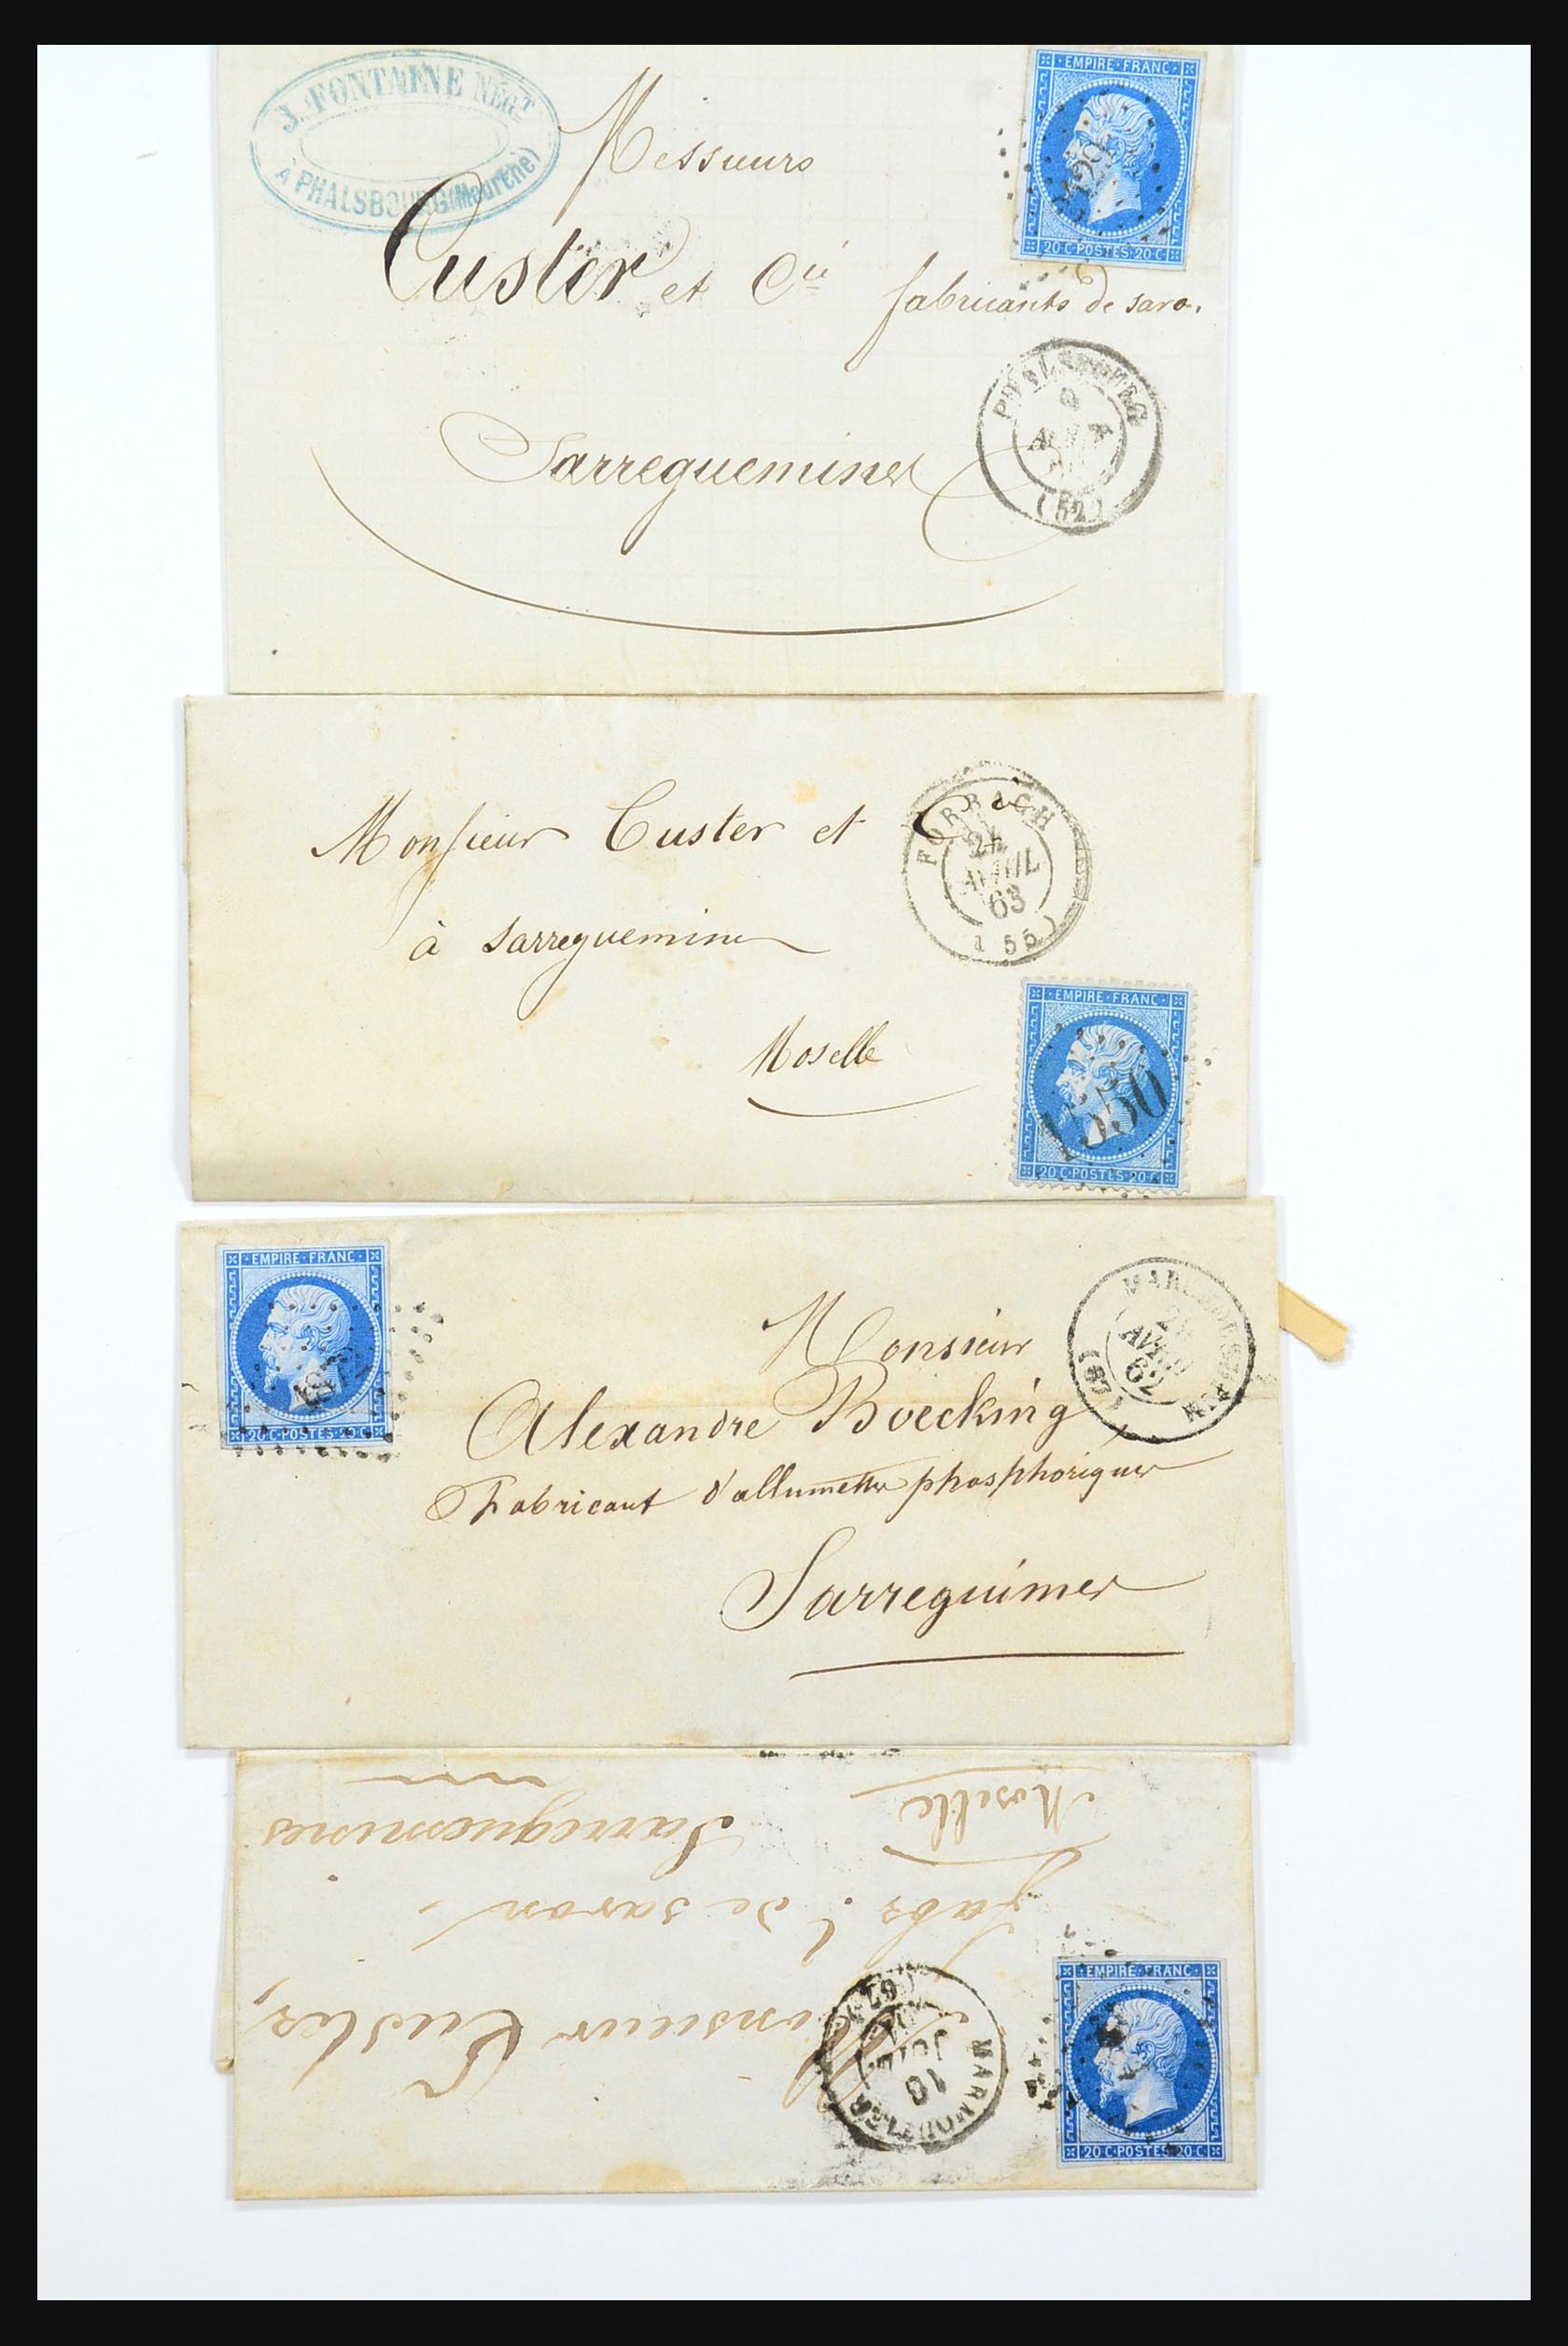 J. FONTAINE NÉGT
À PHALSBOURG (Meurthe)
EMPIRE·FRANC·
20·C·POSTES·20·C
Messieurs
Custer et Cie fabricants de savo.
Sarreguemines
PHALSBOURG
(52)
FORBACH
24
AVRIL
63
(55)
Monsieur Custer et C
à Sarreguemines
Moselle
EMPIRE·FRANC·
1556
20·C·POSTES·20·C
EMPIRE·FRANC·
20·C·POSTES·20·C
AVRIL
62
(67)
Monsieur
Alexandre Boecking
Fabricant d'allumettes phosphoriques
Sarreguimes
EMPIRE·FRANC·
20·C·POSTES·20·C
MARMOUTIER
10
JUIL
(67)
Monsieur Custer,
fabt. de savon
Sarreguemines
Moselle